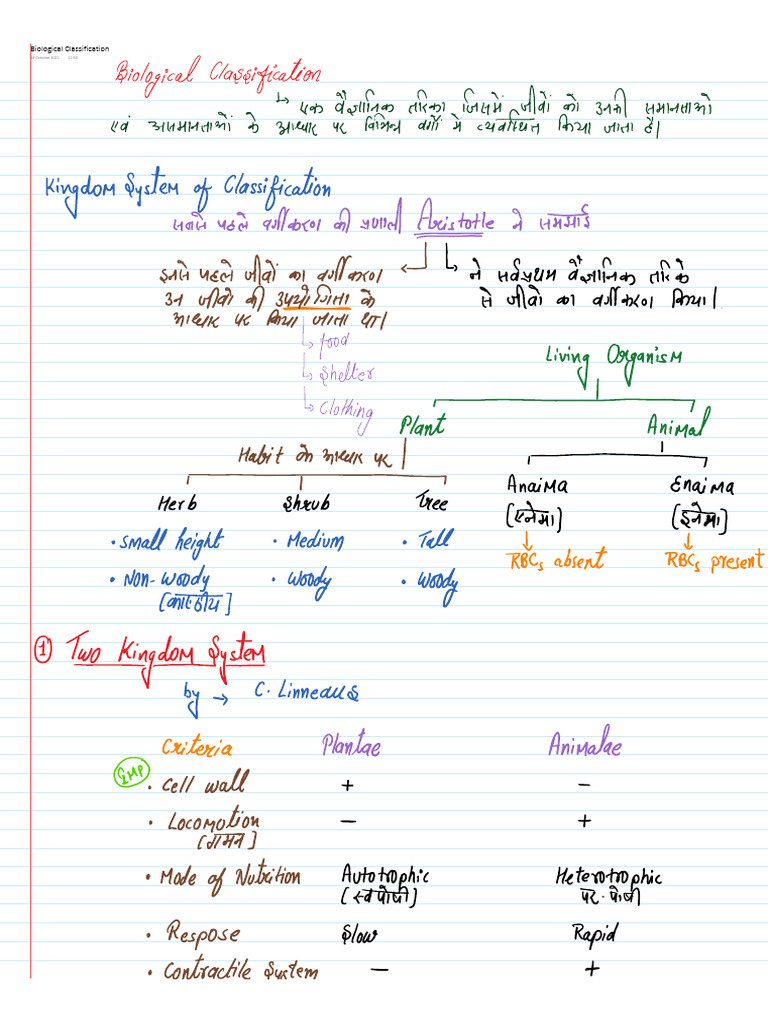 Biological Classification
Biological Classification
↳ एक वैज्ञानिक तरिका जिसमें जीवों को उनकी समानताओ
एवं असमानताओं के आधार पर विभिन्न वर्गो में व्यवस्थित किया जाता है।
Kingdom System of Classification
सबसे पहले वर्गीकरण की प्रणाली Aristotle ने समझाई
इनसे पहले जीवों का वर्गीकरण
उन जीवो की उपयोगिता के
आधार पर किया जाता था।
ने सर्वप्रथम वैज्ञानिक तरिके
से जीवो का वर्गीकरण किया।
↳ food
↳ Shelter
↳ Clothing
Living Organism
Plant Animal
Habit के आधार पर
Herb Shrub Tree
Anaima Enaima
[एनेमा] [इनेमा]
RBCs absent RBCs present
• Small height • Medium • Tall
• Non-woody • Woody • Woody
① Two Kingdom System
by → C. Linneaus
Criteria Plantae Animalae
IMP
• Cell wall + −
• Locomotion − +
[गमन]
• Mode of Nutrition Autotrophic Heterotrophic
[स्वपोषी] पर-पोषी
• Respose Slow Rapid
• Contractile System − +